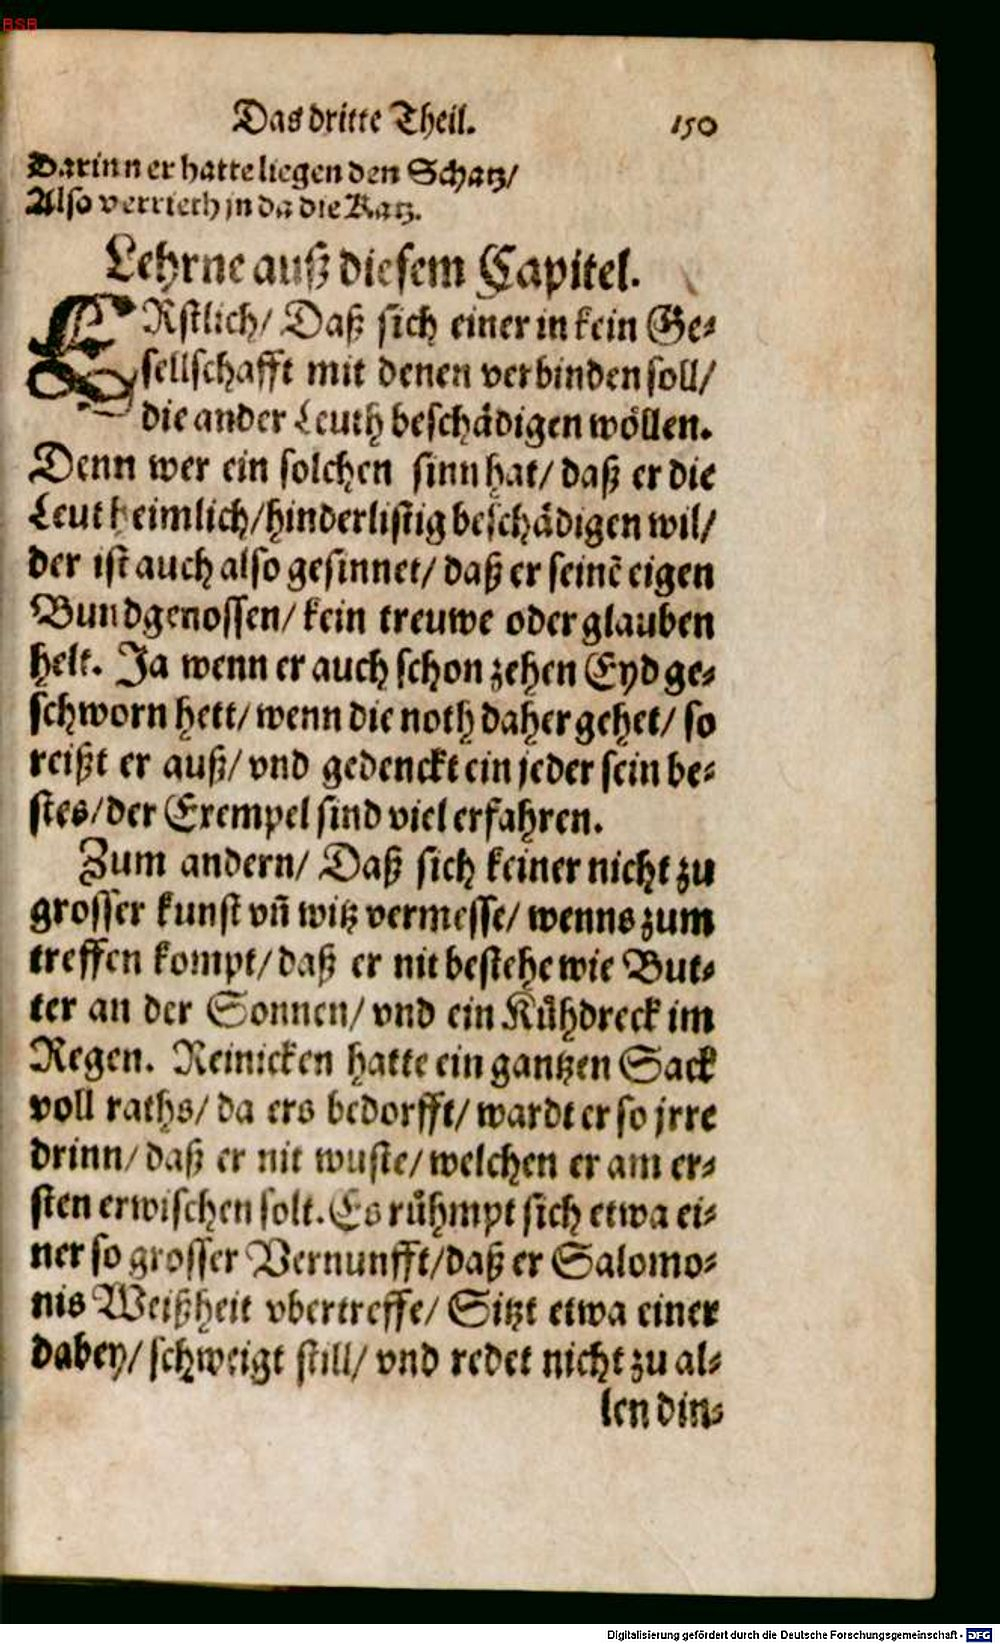 BSB
Das dritte Theil. 150
Darinn er hatte liegen den Schatz/
Also verrieth jn da die Katz.
Lehrne auß diesem Capitel.
ERstlich/ Daß sich einer in kein Ge-
sellschafft mit denen verbinden soll/
die ander Leuth beschädigen wöllen.
Denn wer ein solchen sinn hat/ daß er die
Leut heimlich/ hinderlistig beschädigen wil/
der ist auch also gesinnet/ daß er seinē eigen
Bundgenossen/ kein treuwe oder glauben
helt. Ja wenn er auch schon zehen Eyd ge-
schworn hett/ wenn die noth daher gehet/ so
reißt er auß/ vnd gedenckt ein jeder sein be-
stes/ der Exempel sind viel erfahren.
Zum andern/ Daß sich keiner nicht zu
grosser kunst vñ witz vermesse/ wenns zum
treffen kompt/ daß er nit bestehe wie But-
ter an der Sonnen/ vnd ein Kühdreck im
Regen. Reinicken hatte ein gantzen Sack
voll raths/ da ers bedorfft/ wardt er so jrre
drinn/ daß er nit wuste/ welchen er am er-
sten erwischen solt. Es rühmpt sich etwa ei-
ner so grosser Vernunfft/ daß er Salomo-
nis Weißheit vbertreffe/ Sitzt etwa einer
dabey/ schweigt still/ vnd redet nicht zu al-
len din-
Digitalisierung gefördert durch die Deutsche Forschungsgemeinschaft - DFG